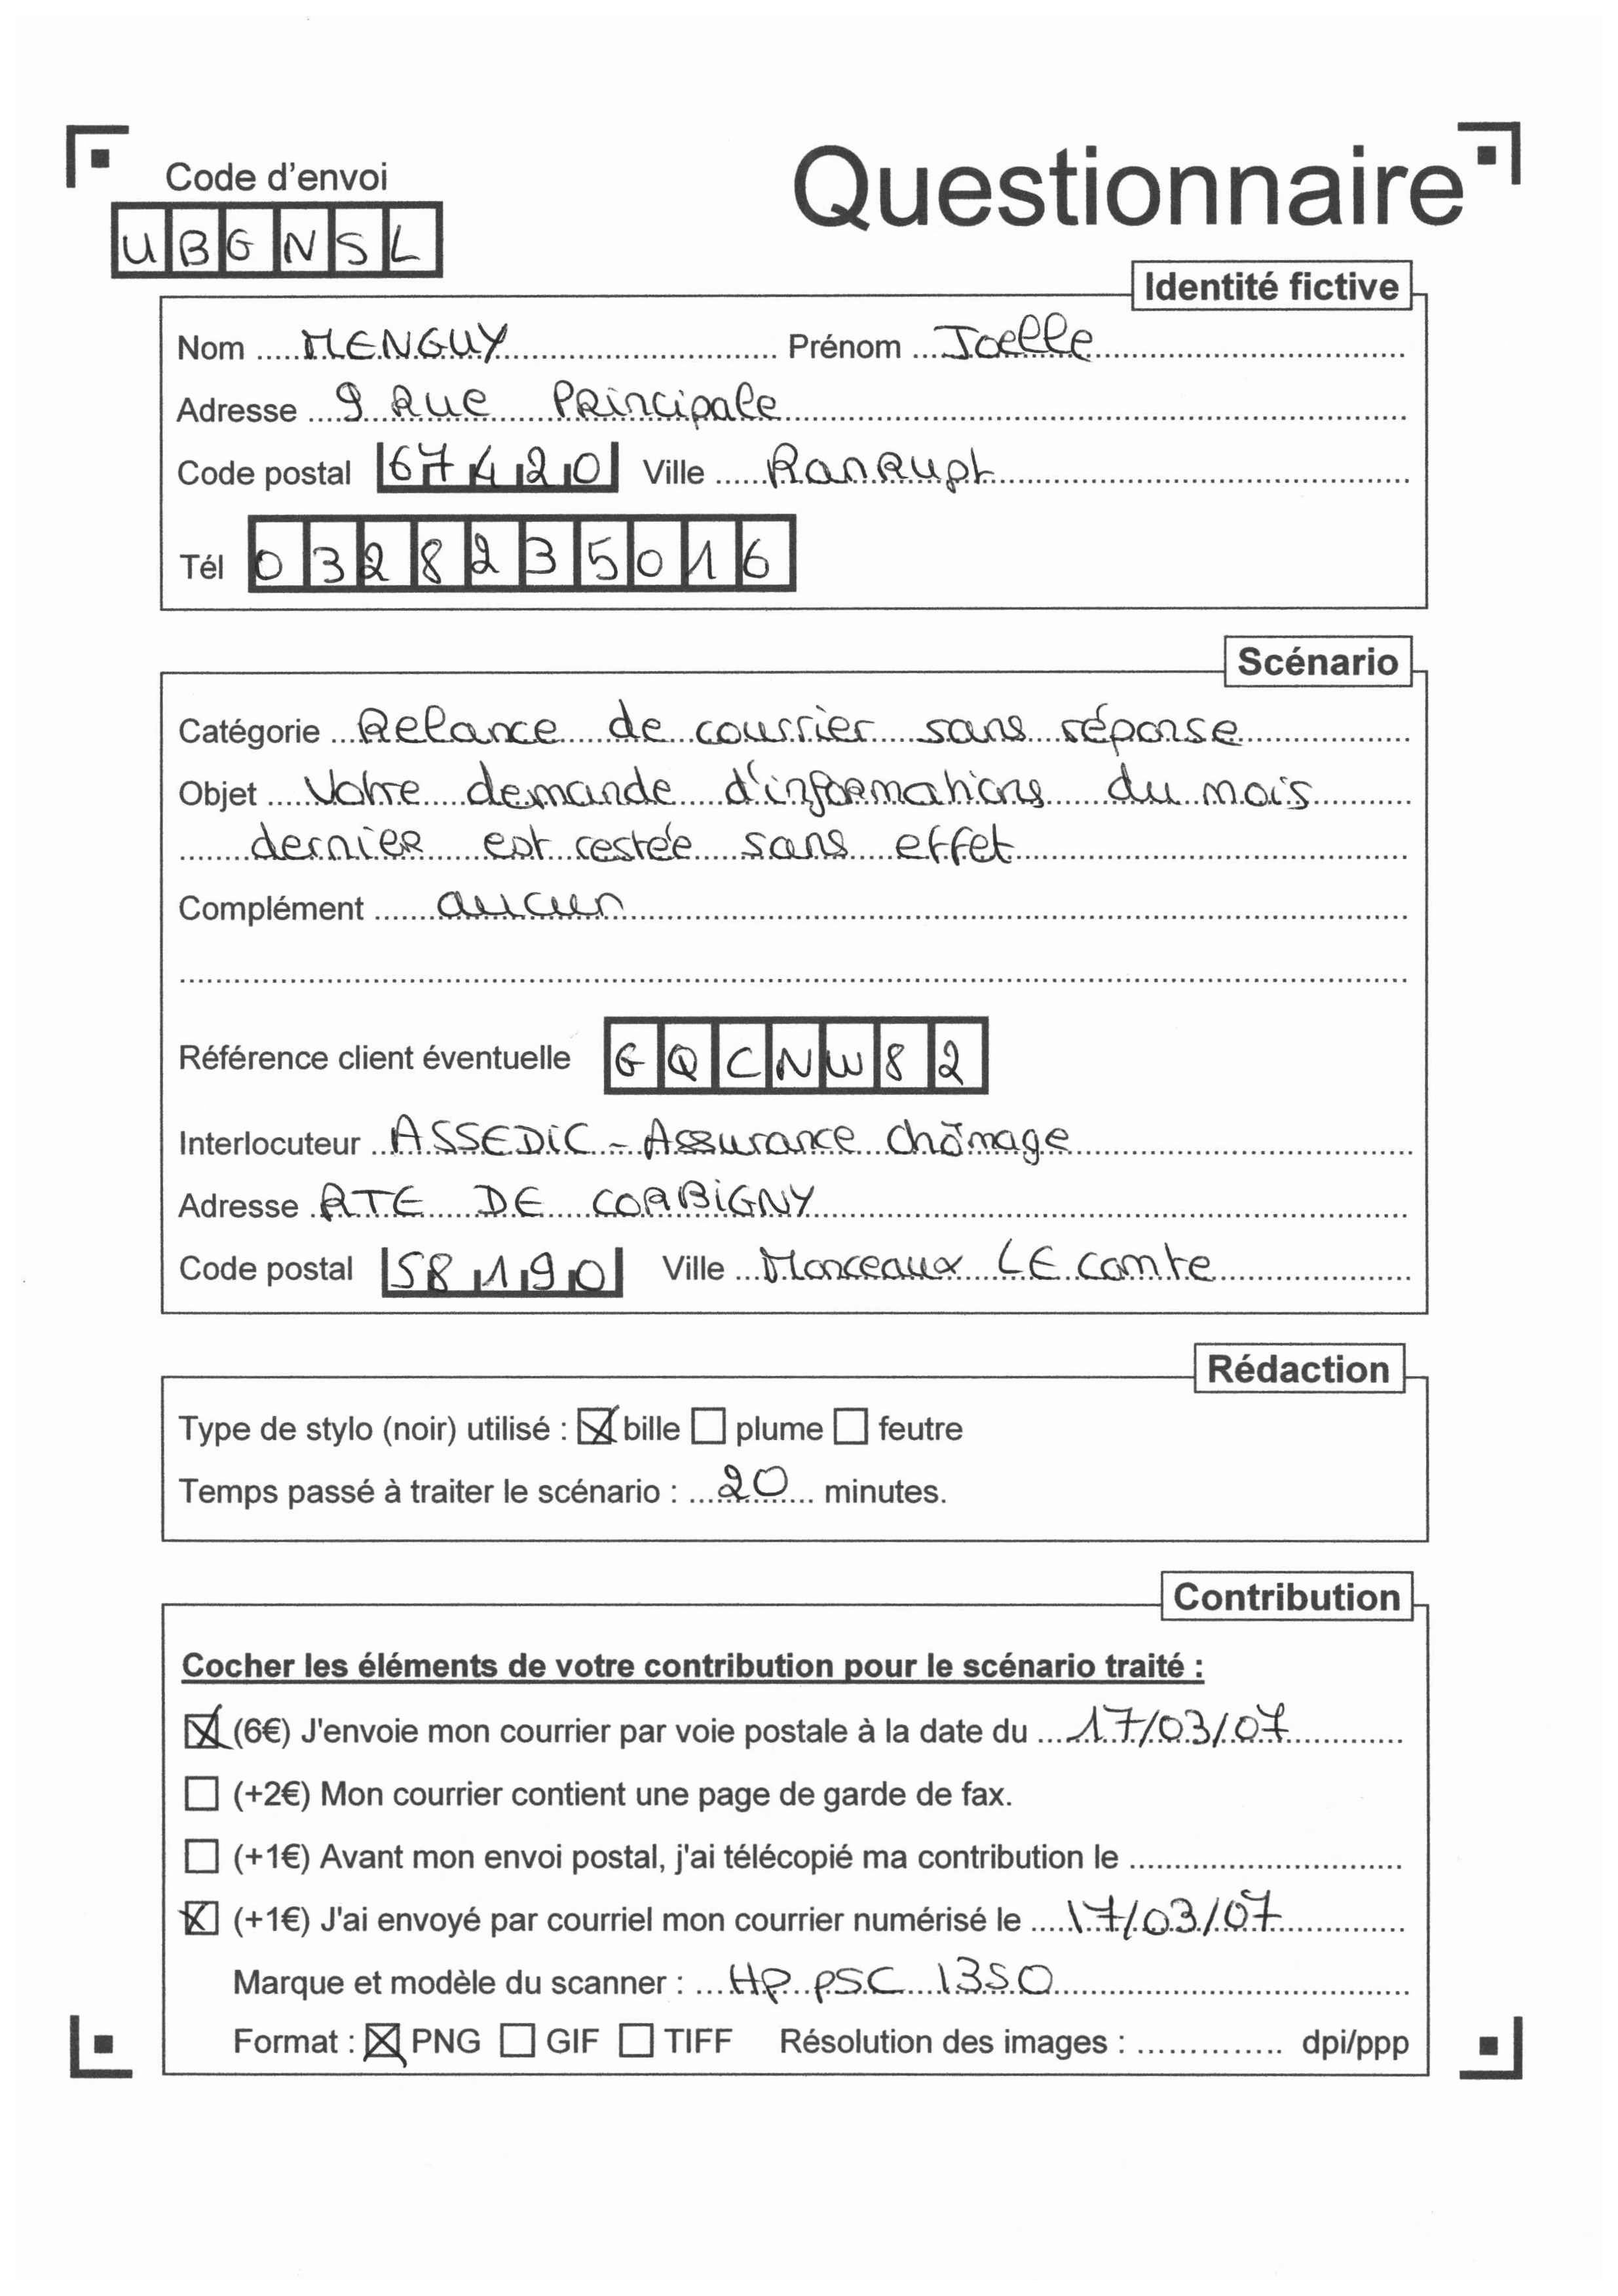 Code d'envoi
Questionnaire
UBGNSL
Identité fictive
Nom MENGUY Prénom Joelle
Adresse 9 Rue Principale
Code postal 67420 Ville RanRupt
Tél 0328235016
Scénario
Catégorie Relance de courrier sans réponse
Objet Votre demande d'informations du mois
dernier est restée sans effet
Complément aucun
Référence client éventuelle GQCNW82
Interlocuteur ASSEDIC - Assurance chômage
Adresse RTE DE CORBIGNY
Code postal 58190 Ville Monceaux LE comte
Rédaction
Type de stylo (noir) utilisé : bille plume feutre
Temps passé à traiter le scénario : 20 minutes.
Contribution
Cocher les éléments de votre contribution pour le scénario traité :
(6€) J'envoie mon courrier par voie postale à la date du 17/03/07
(+2€) Mon courrier contient une page de garde de fax.
(+1€) Avant mon envoi postal, j'ai télécopié ma contribution le
(+1€) J'ai envoyé par courriel mon courrier numérisé le 17/03/07
Marque et modèle du scanner : HP PSC 1350
Format : PNG GIF TIFF Résolution des images : dpi/ppp